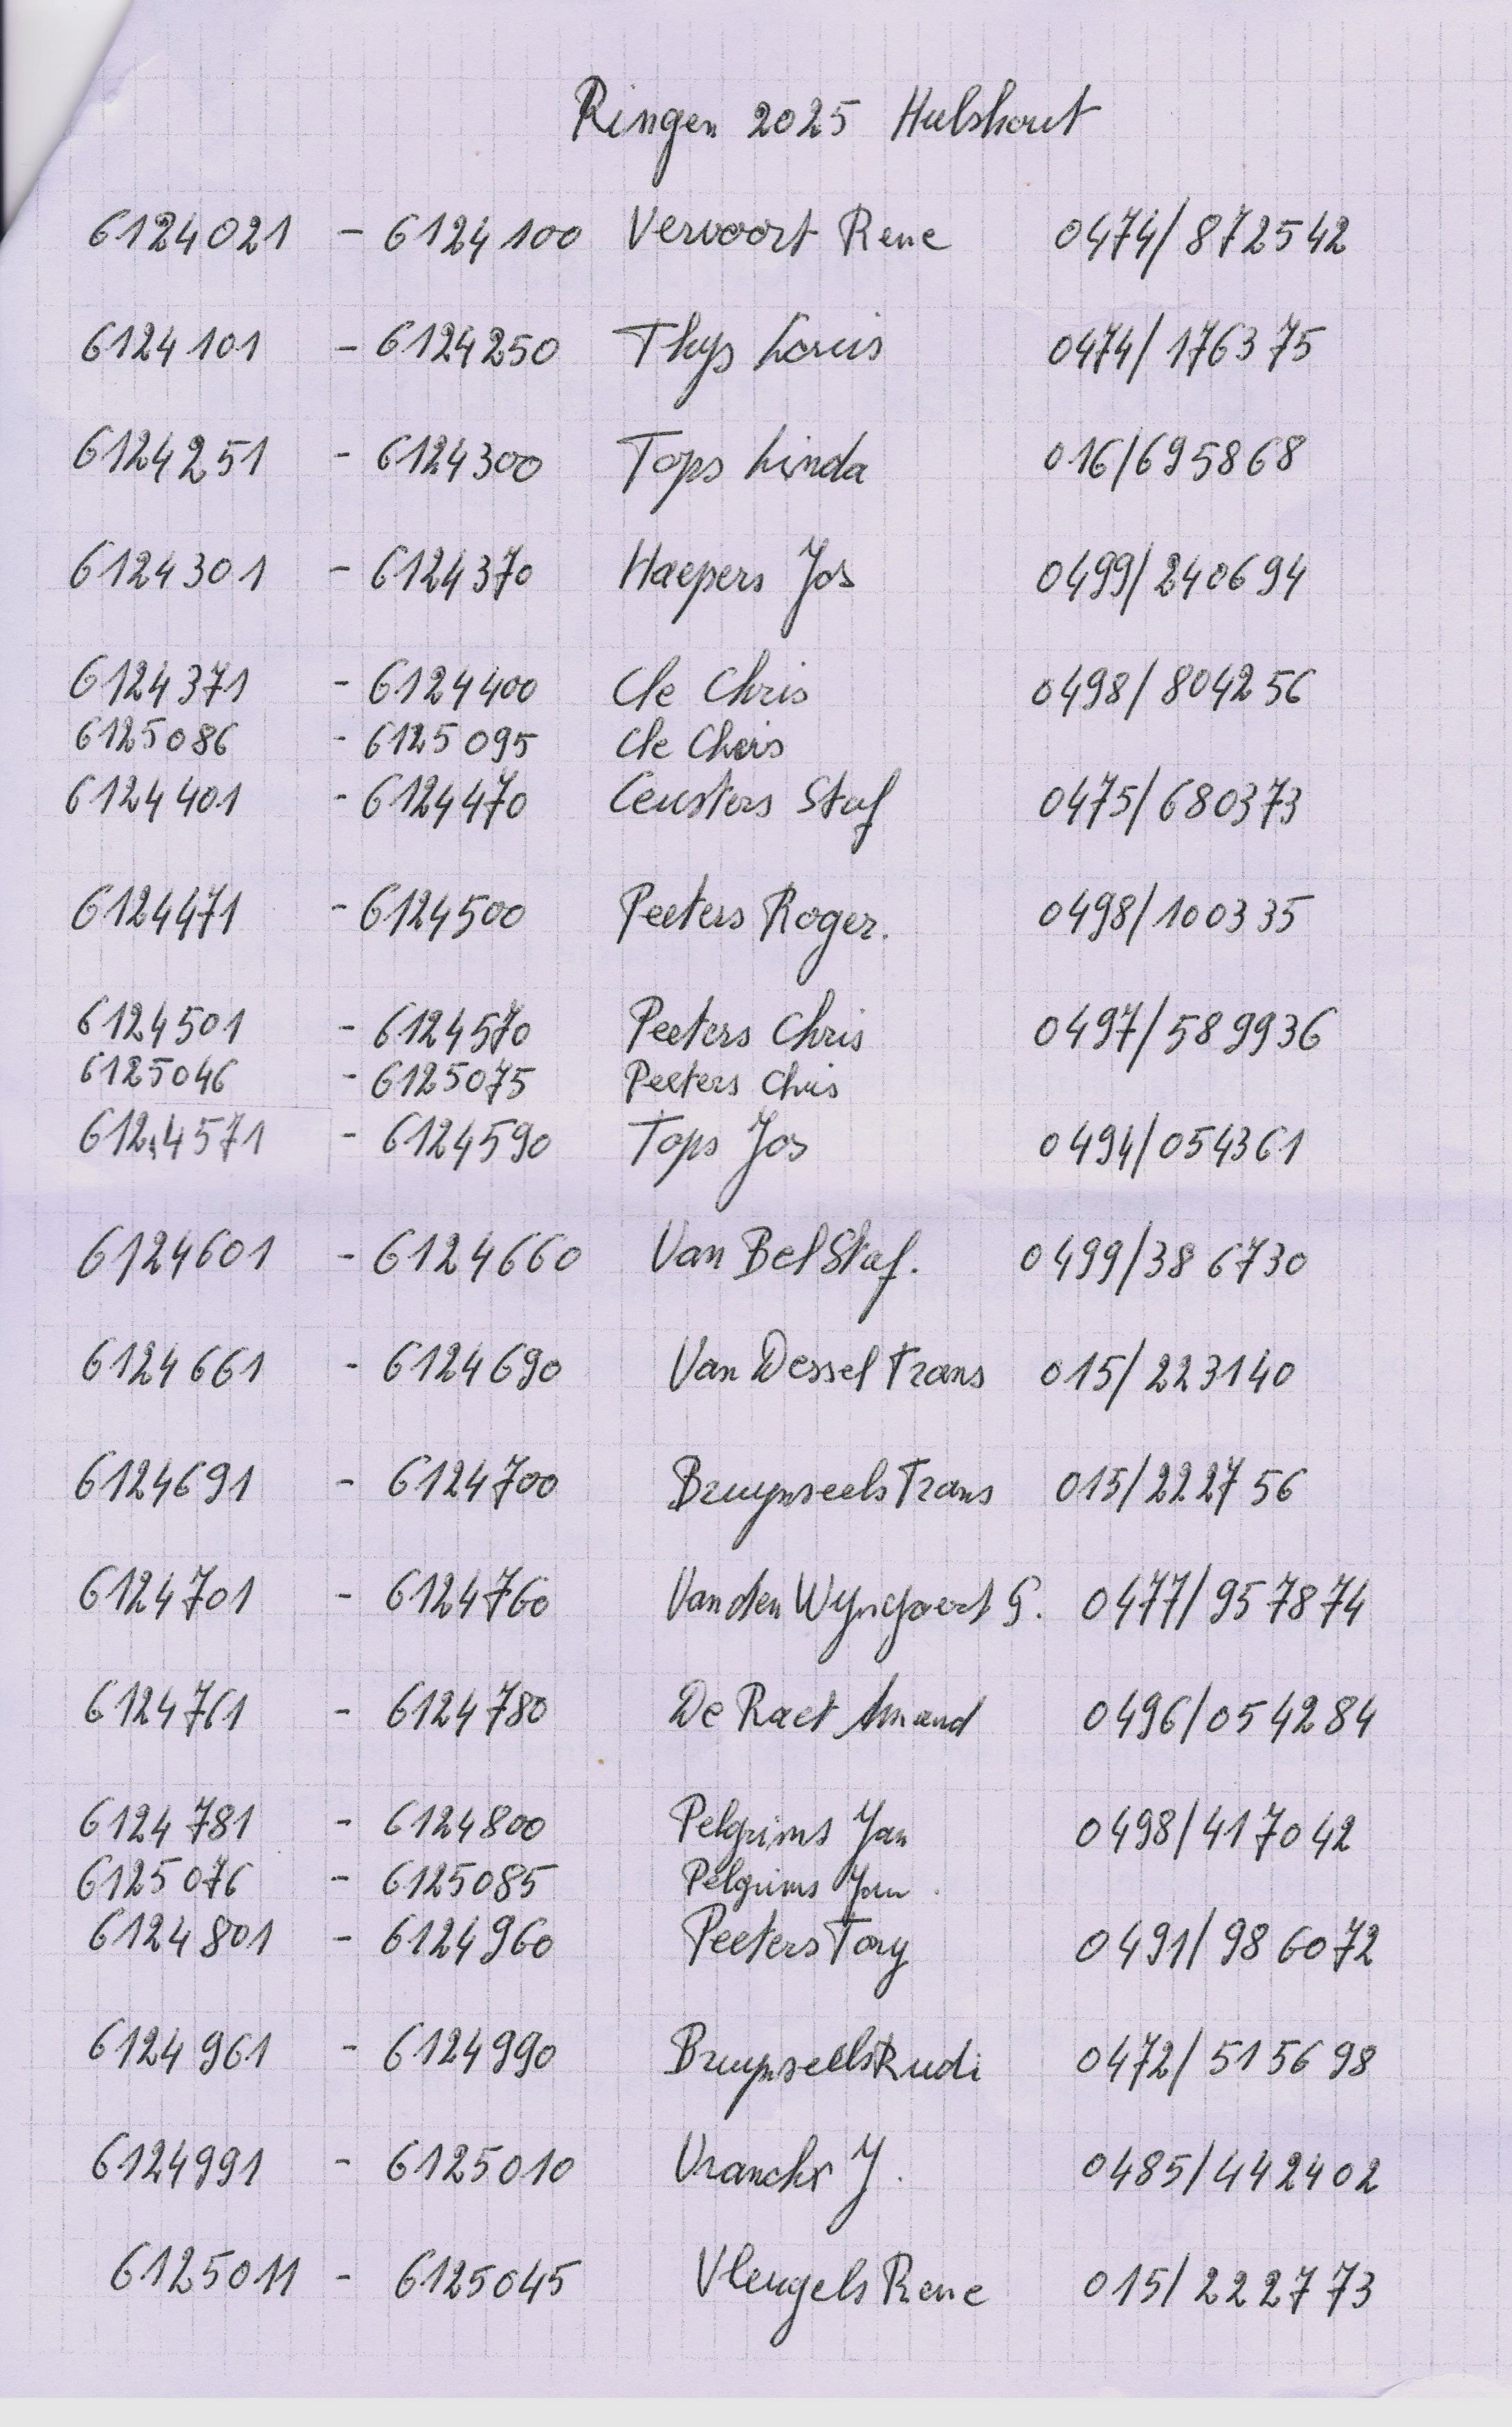 Ringen 2025 Hulshout
6124021 - 6124100 Vervoort Rene 0474/872542
6124101 - 6124250 Thys Louis 0474/176375
6124251 - 6124300 Tops Linda 016/695868
6124301 - 6124370 Haepers Jos 0499/240694
6124371 - 6124400 Cle Chris 0498/804256
6125086 - 6125095 Cle Chris
6124401 - 6124470 Ceusters Staf 0475/680373
6124471 - 6124500 Peeters Roger. 0498/100335
6124501 - 6124570 Peeters Chris 0497/589936
6125046 - 6125075 Peeters Chris
6124571 - 6124590 Tops Jos 0494/054361
6124601 - 6124660 Van Bel Staf. 0499/386730
6124661 - 6124690 Van Dessel Frans 015/223140
6124691 - 6124700 Bruynseels Frans 015/222756
6124701 - 6124760 Van den Wyngaert G. 0477/957874
6124761 - 6124780 De Raet Amand 0496/054284
6124781 - 6124800 Pelgrims Jan 0498/417042
6125076 - 6125085 Pelgrims Jan
6124801 - 6124960 Peeters Tony 0491/986072
6124961 - 6124990 Bruynseels Rudi 0472/515698
6124991 - 6125010 Vranckx J. 0485/442402
6125011 - 6125045 Vleugels Rene 015/222773